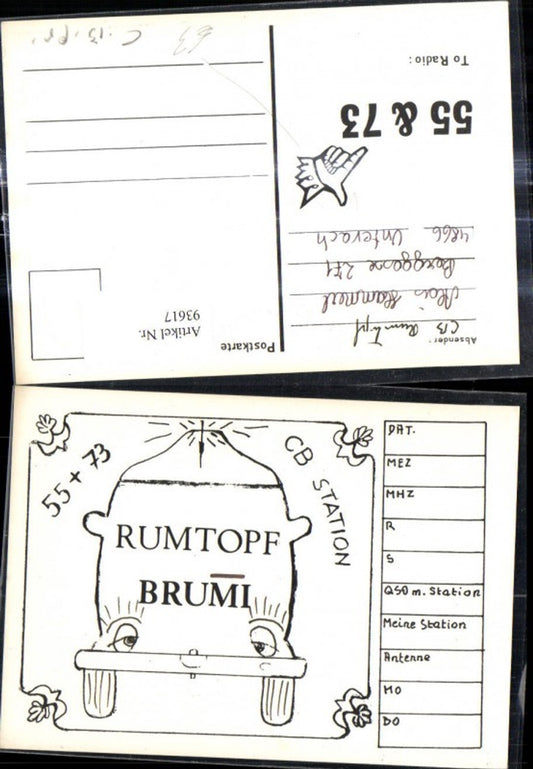 Postkarte
Artikel Nr.
93617
Absender:
CB Rumtopf
Alois Hammerl
Berggasse 271
4866 Unterach
55 & 73
To Radio:
63
55 + 73
CB STATION
RUMTOPF
BRUMI
DAT.
MEZ
MHZ
R
S
QSO m. Station
Meine Station
Antenne
MO
DO